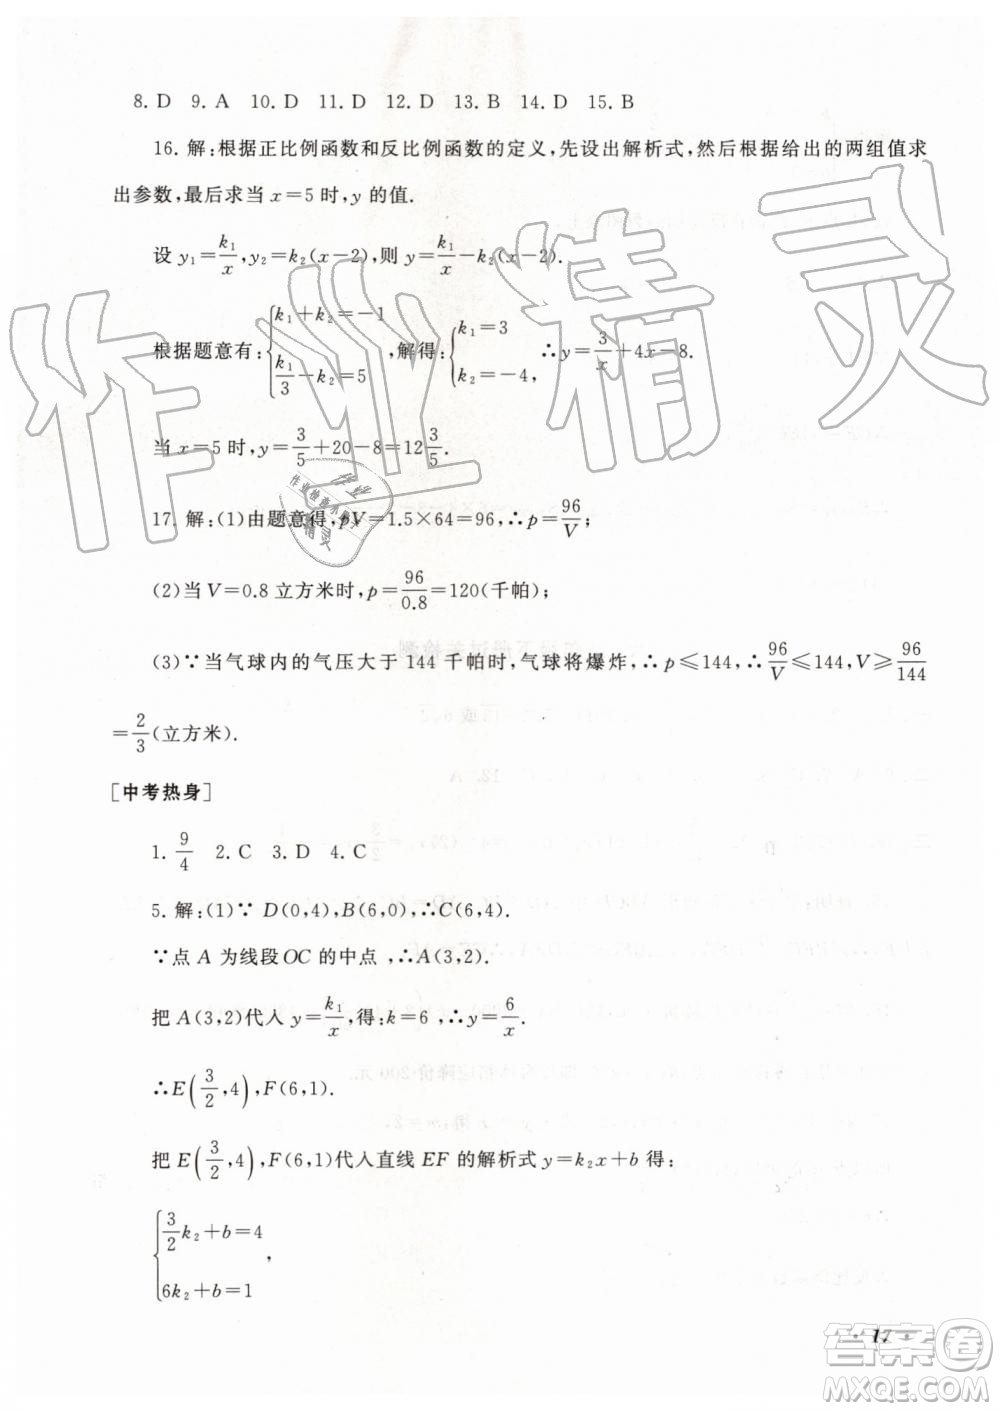 8. D 9. A 10. D 11. D 12. D 13. B 14. D 15. B
16. 解:根据正比例函数和反比例函数的定义,先设出解析式,然后根据给出的两组值求
出参数,最后求当 x=5 时,y 的值.
设 y₁=k₁/x,y₂=k₂(x−2),则 y=k₁/x−k₂(x−2).
根据题意有:{k₁+k₂=−1, k₁/3−k₂=5,解得:{k₁=3, k₂=−4, ∴y=3/x+4x−8.
当 x=5 时,y=3/5+20−8=12 3/5.
17. 解:(1)由题意得,pV=1.5×64=96,∴p=96/V;
(2)当 V=0.8 立方米时,p=96/0.8=120(千帕);
(3)∵当气球内的气压大于 144 千帕时,气球将爆炸,∴p≤144,∴96/V≤144,V≥96/144
=2/3(立方米).
[中考热身]
1. 9/4 2. C 3. D 4. C
5. 解:(1)∵D(0,4),B(6,0),∴C(6,4).
∵点 A 为线段 OC 的中点,∴A(3,2).
把 A(3,2)代入 y=k₁/x,得:k=6,∴y=6/x.
∴E(3/2,4),F(6,1).
把 E(3/2,4),F(6,1)代入直线 EF 的解析式 y=k₂x+b 得:
{3/2k₂+b=4
6k₂+b=1,
· 17 ·
作业精灵
作业
作业检查小助手
精灵
答案圈
MXQE.COM